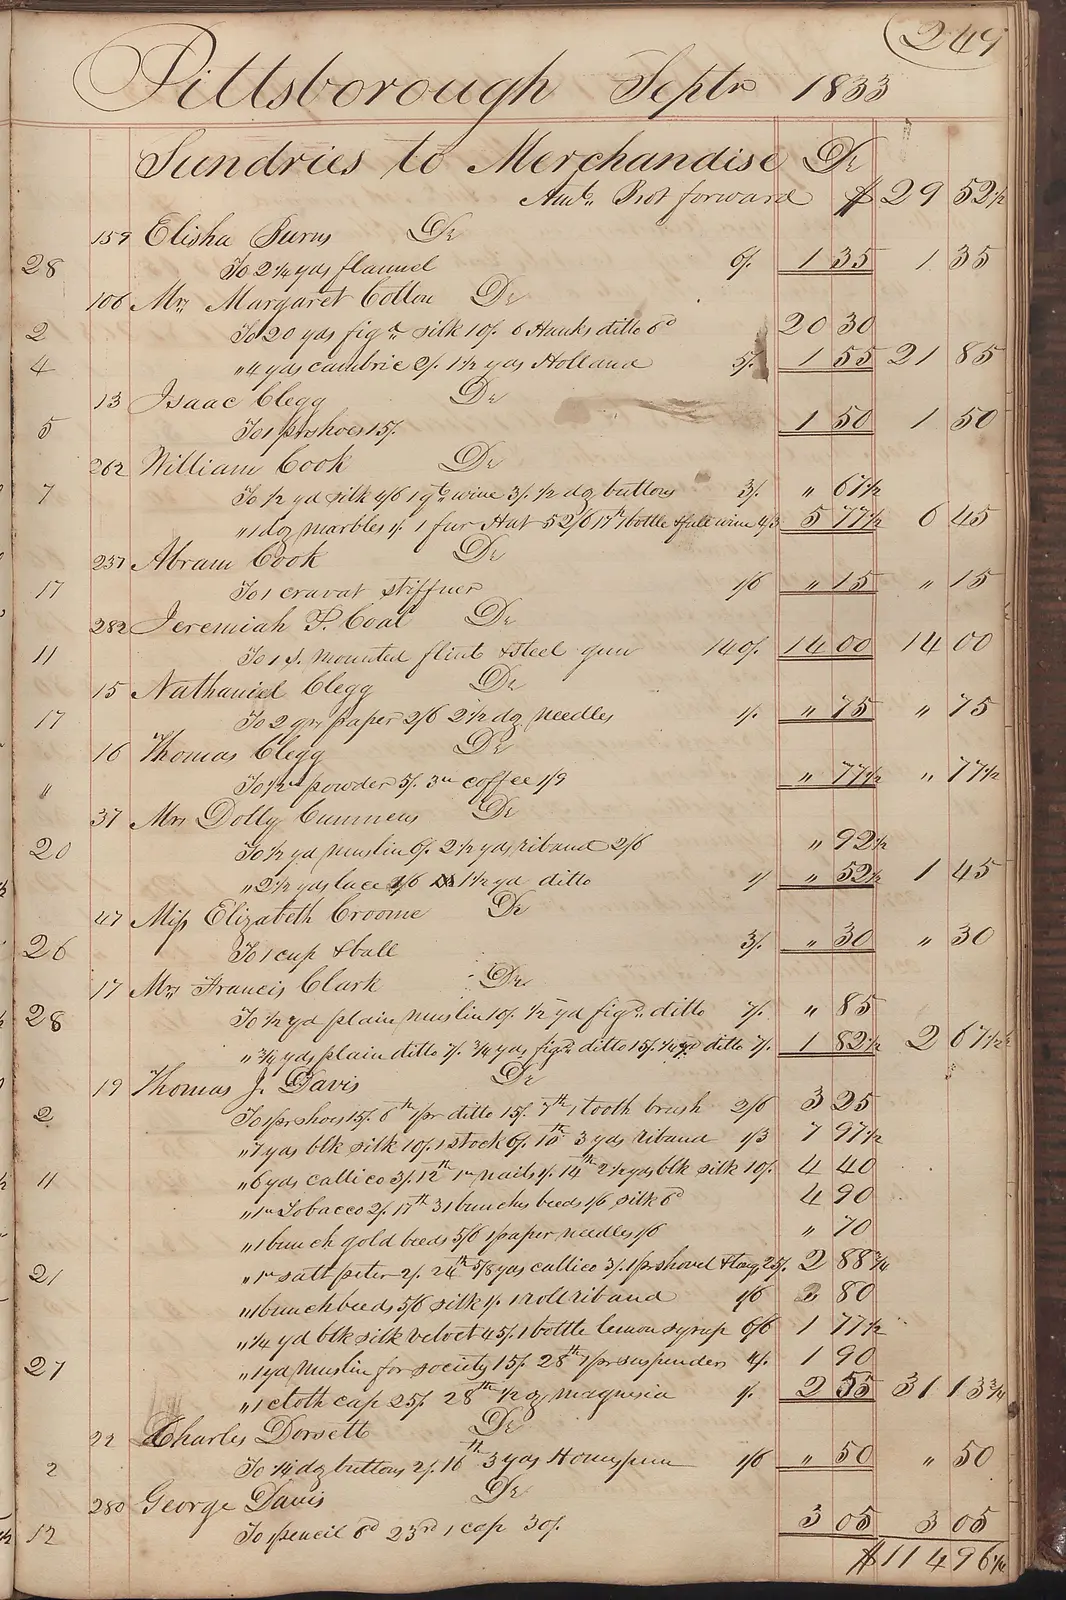 249
Pittsborough Septr 1833
Sundries to Merchandise Dr
Amt. Brot forward $ 29 52½
159 Elisha Burns Dr
28 To 2¼ yds flannel 6/. 1 35 1 35
106 Mrs Margaret Cotten Dr
2 To 20 yds figd. silk 10/. 6 Hanks ditto 6d 20 30
4 " 4 yds cambric 2/. 1½ yds Holland 5/. 1 55 21 85
13 Isaac Clegg Dr
5 To 1 pr shoes 15/. 1 50 1 50
262 William Cook Dr
7 To ½ yd silk 4/6 1 qt. wine 3/. ½ dz buttons 3/. " 67½
" 1 dz marbles 1/. 1 fur Hat 52/6 17th 1 bottle & full wine 4/3 5 77½ 6 45
237 Abram Cook Dr
17 To 1 cravat stiffner 1/6 " 15 " 15
282 Jeremiah P. Coal Dr
11 To 1 S. mounted flint & steel gun 140/. 14 00 14 00
15 Nathaniel Clegg Dr
17 To 2 qrs paper 2/6 2½ dz needles 1/. " 75 " 75
16 Thomas Clegg Dr
" To ½ lb powder 5/. 3 lb coffee 1/9 " 77½ " 77½
37 Mrs Dolly Cummens Dr
20 To ½ yd muslin 6/. 2½ yds riband 2/6 " 92½
" 2½ yds lace 1/6 1½ yd ditto 1/ " 52½ 1 45
47 Miss Elizabeth Croome Dr
26 To 1 cup & ball 3/. " 30 " 30
17 Mrs Francis Clark Dr
28 To ½ yd plain muslin 10/. ½ yd figd. ditto 7/. " 85
" ¾ yds plain ditto 7/. ¾ yds figd ditto 15/. ¼ yd ditto 7/. 1 82½ 2 67½
19 Thomas J. Davis Dr
2 To 1 pr shoes 15/. 6th 1 pr ditto 15/. 7th 1 tooth brush 2/6 3 25
" 7 yds blk silk 10/. 1 stock 6/. 10th 3 yds riband 1/3 7 97½
11 " 6 yds callico 3/. 12th 1 lb nails 1/. 14th 2½ yds blk silk 10/. 4 40
" 1 lb Tobacco 2/. 17th 31 bunches beeds 1/6 silk 6d 4 90
" 1 bunch gold beeds 5/6 1 paper needles 1/6 " 70
21 " 1 lb salt peter 2/. 24th 5/8 yds callico 3/. 1 pr shovel & tongs 25/. 2 88¾
" 1 bunch beeds 5/6 silk 1/. 1 roll riband 1/6 " 80
" ¼ yd blk silk velvet 45/. 1 bottle lemon syrup 6/6 1 77½
27 " 1 yd muslin for society 15/. 28th 1 pr suspenders 4/. 1 90
" 1 cloth cap 25/. 28th ½ oz magnesia 1/. 2 55 31 13¾
22 Charles Dorsett Dr
2 To ¼ dz buttons 2/. 16th 3 yds Homespun 1/6 " 50 " 50
280 George Davis Dr
12 To 1 pencil 6d 23rd 1 cap 30/. 3 05 3 05
$ 114 96¼